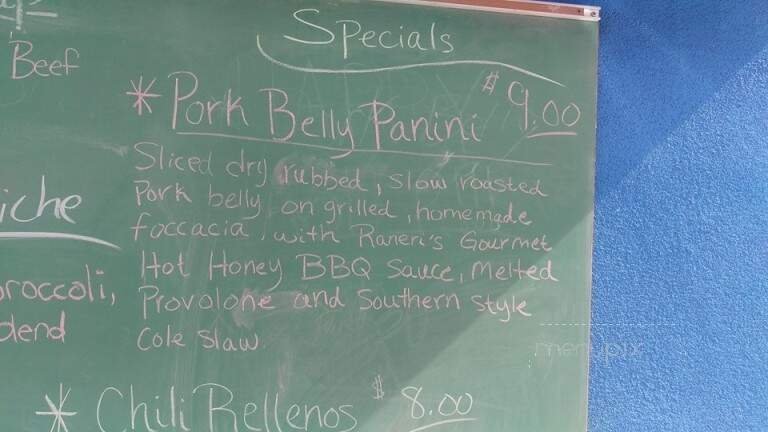 Specials
Beef
* Pork Belly Panini $9.00
Sliced dry rubbed, slow roasted
Pork belly on grilled, homemade
foccacia, with Raneri's Gourmet
Hot Honey BBQ Sauce, Melted
Provolone and Southern style
Cole Slaw.
iche
roccoli,
dend
* Chili Rellenos $8.00
menupix